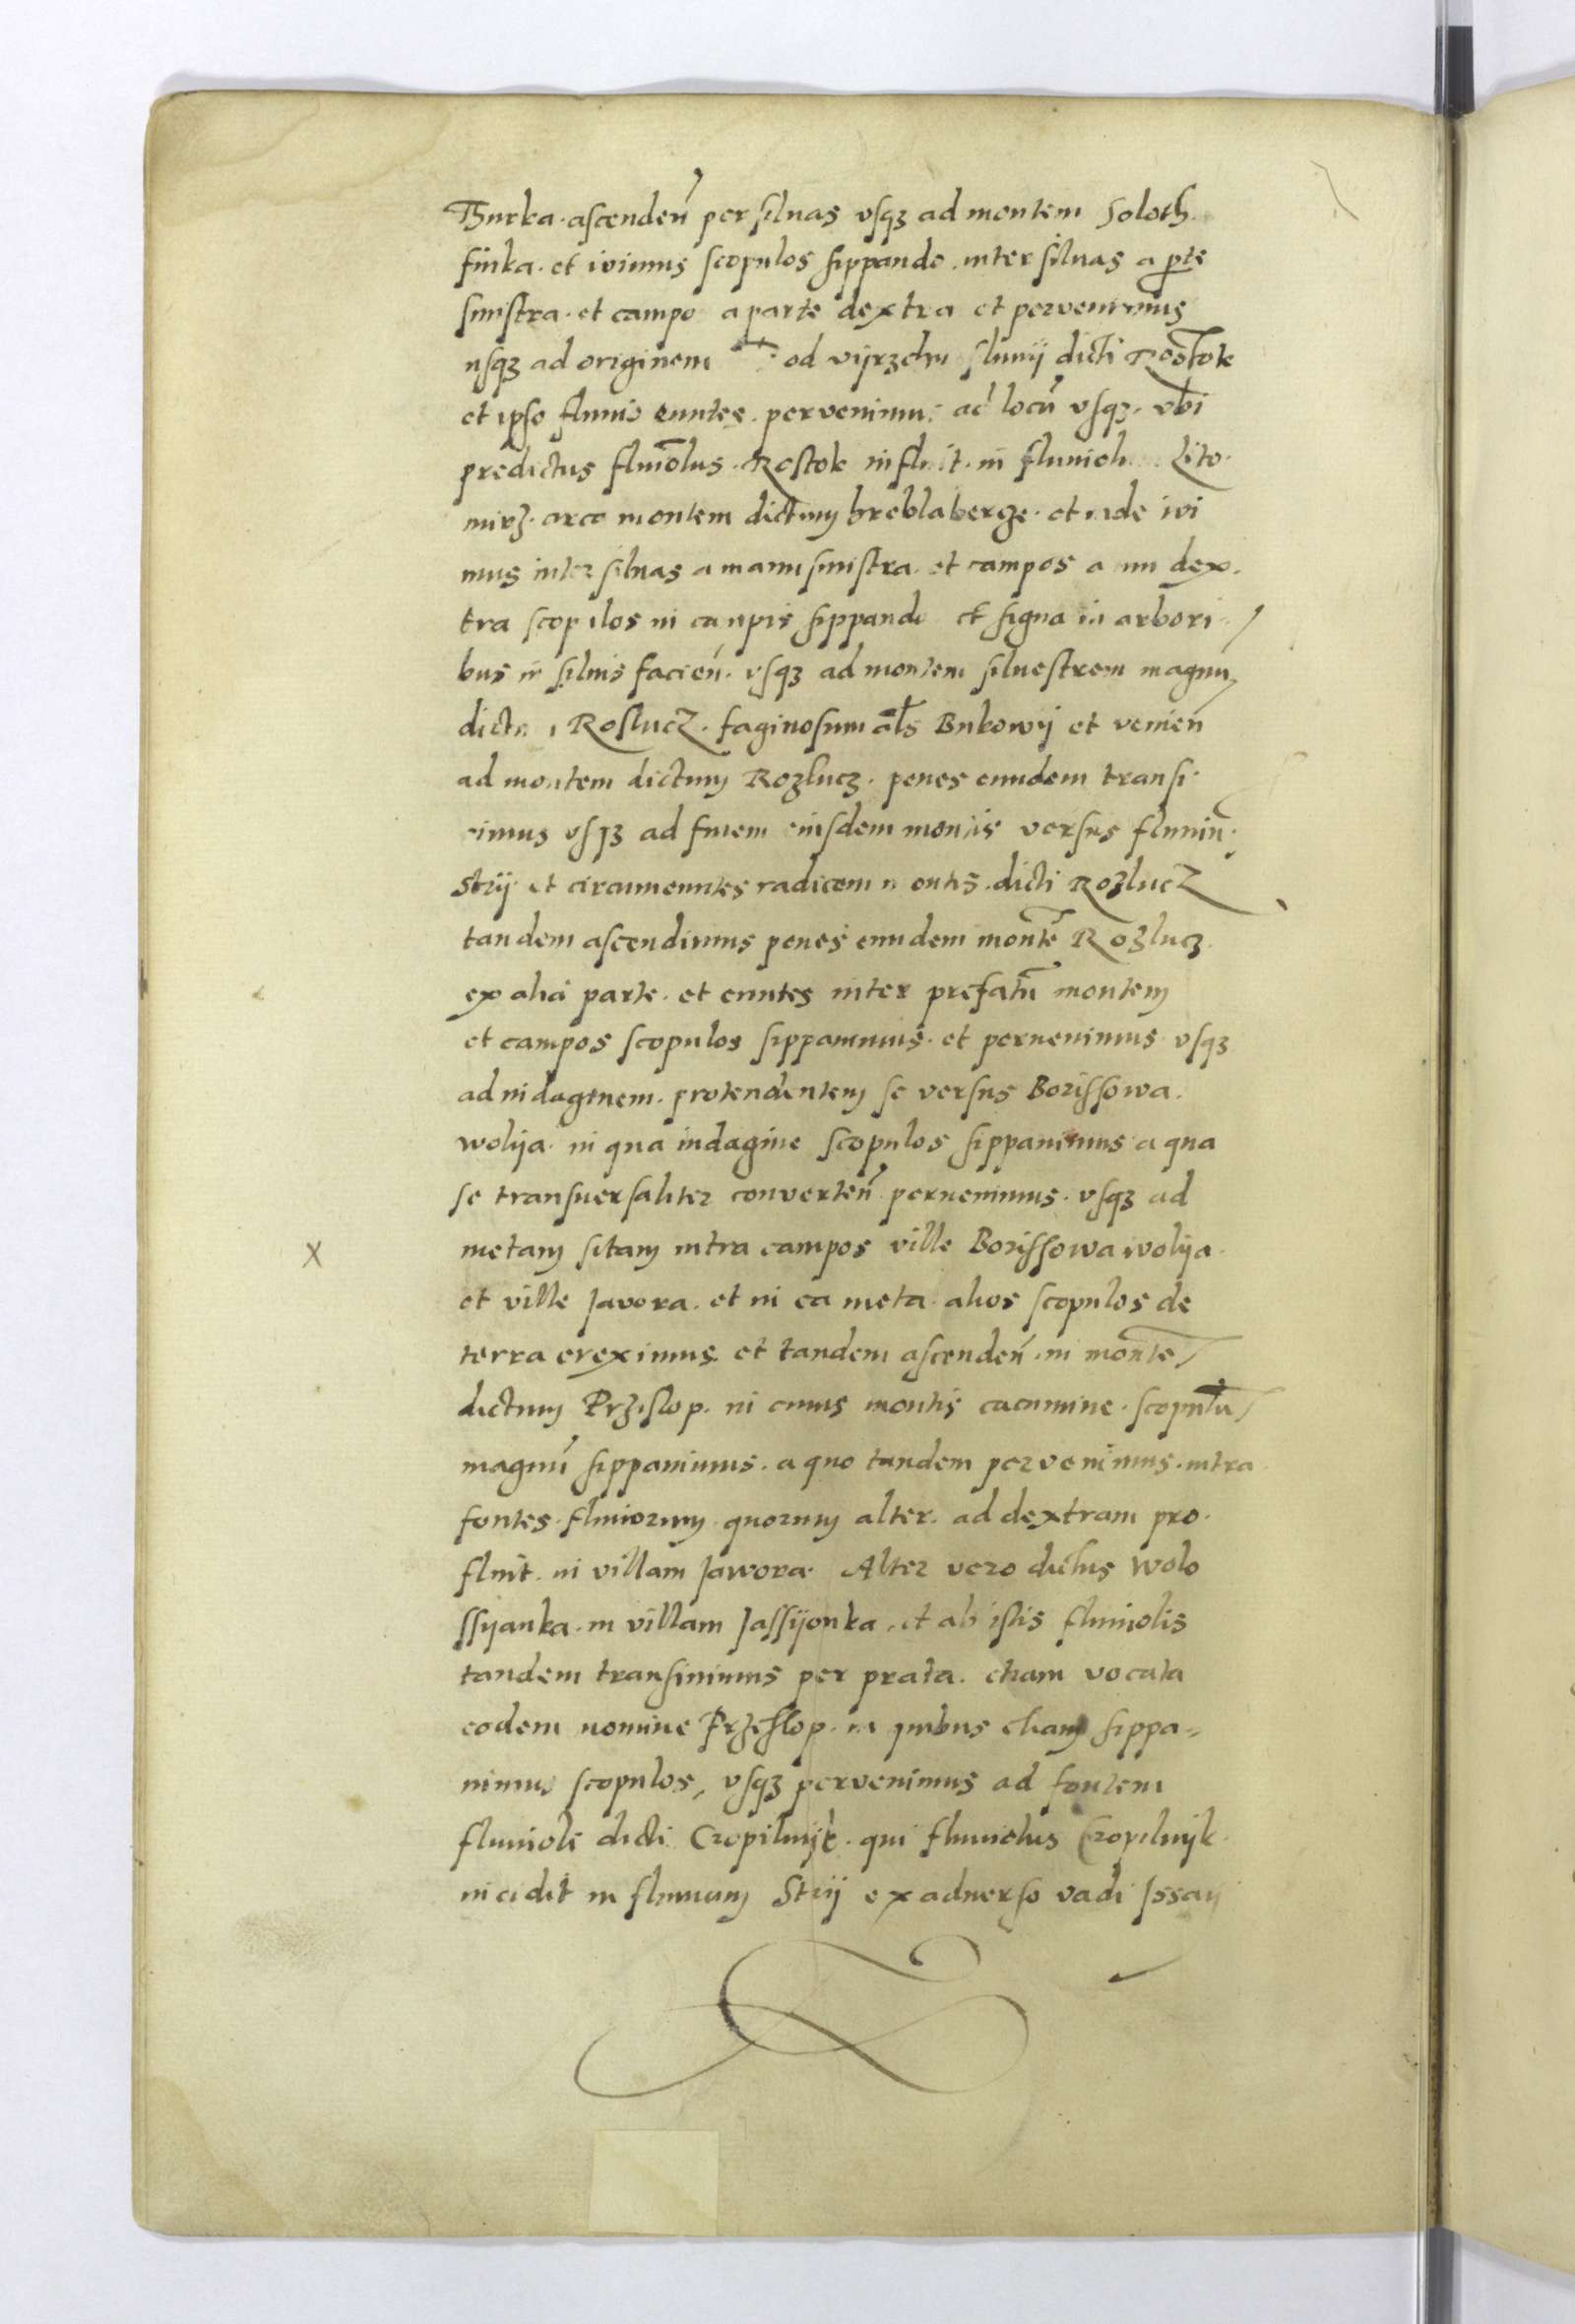 Thurka. ascenden̄ per siluas vsqꝫ ad montem Soloth
finka. et ivimus scopulos sippando. inter siluas a ꝑte
sinistra. et campo a parte dextra et pervenimus
usqꝫ ad originem od vijrzchu fluuij dicti Rostok
et ipso fluuio euntes. pervenimus ad locū vsqꝫ. vbi
predictus fluuiolus. Rostok influit. in fluuiolu Lito.
mirz. circa montem dictum hreblaberze. et inde ivi
mus inter siluas a manu sinistra. et campos a dex.
tra scopulos in campis sippando et signa in arbori
bus in siluis facien̄. vsqꝫ ad montem siluestrem magnū
dictu Roslucz. faginosum al̄s Bukowij et venien̄
ad montem dictum Rozlucz. penes eundem transi
vimus vsqꝫ ad finem eiusdem montis versus fluuiū
Strij et circumeuntes radicem montis. dicti Rozlucz
tandem ascendimus penes eundem montē Rozlucz
ex alia parte. et euntes inter prefatū montem
et campos scopulos sippauimus. et peruenimus vsqꝫ
ad indaginem. protendentem se versus Borissowa.
wolija. in qua indagine scopulos sippauimus a qua
se transuersaliter converten̄ peruenimus. vsqꝫ ad
metam sitam intra campos ville Borissowa wolija.
et ville Javora. et in ea meta. alios scopulos de
terra ereximus. et tandem ascenden̄. in monte
dictum Przislop. in cuius montis cacumine. scopulū
magnū sippauimus. a quo tandem pervenimus. intra
fontes. fluuiorum quorum alter. ad dextram pro.
fluit. in villam Jawora. Alter vero dictus Wolo
ssijanka. in villam Jassijonka. et ab istis fluuiolis
tandem transiuimus per prata. etiam vocata
eodem nomine Przeslop. in quibus etiam sippa=
uimus scopulos, vsqꝫ pervenimus ad fontem
fluuioli dicti Cropilnijk. qui fluuiolus Cropilnijk.
incidit in fluuium Strij ex aduerso vadi Jssaij